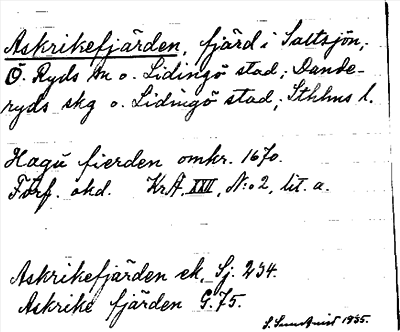 Askrikefjärden, fjärd i Saltsjön,
Ö. Ryds sn o. Lidingö stad; Dande-
ryds skg o. Lidingö stad; Sthlms l.
Hagu fierden omkr. 1670.
Förf. okd. KrA. XXVI, N:o 2, lit. a.
Askrikefjärden ek. Sj. 234.
Askrike fjärden G. 75.
S. Sundquist 1935.